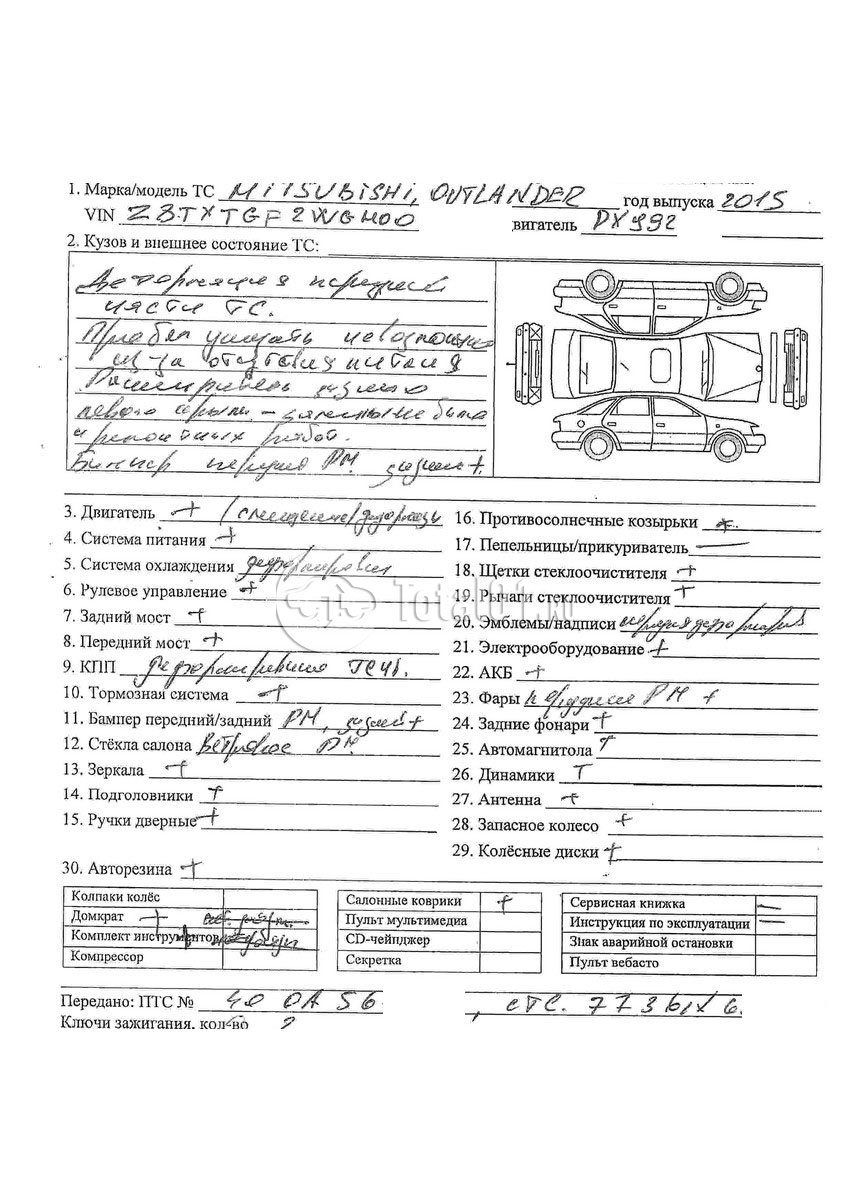 1. Марка/модель ТС MITSUBISHI, OUTLANDER год выпуска 2015
VIN Z8TXTGF2WGM00 вигатель DX992
2. Кузов и внешнее состояние ТС:
Деформация передней
части ТС.
Пробег указать невозможно
из-за отсутствия питания
Расширитель заднего
левого крыла –
ремонтных работ.
Бампер передний РМ, задний +
3. Двигатель + (смещение/деформац
4. Система питания +
5. Система охлаждения деформирован
6. Рулевое управление +
7. Задний мост +
8. Передний мост +
9. КПП деформирована
10. Тормозная система +
11. Бампер передний/задний РМ, задний +
12. Стёкла салона Ветровое РМ
13. Зеркала +
14. Подголовники +
15. Ручки дверные +
16. Противосолнечные козырьки +
17. Пепельницы/прикуриватель —
18. Щетки стеклоочистителя +
19. Рычаги стеклоочистителя +
20. Эмблемы/надписи передняя деформирована
21. Электрооборудование +
22. АКБ +
23. Фары РМ +
24. Задние фонари +
25. Автомагнитола +
26. Динамики +
27. Антенна +
28. Запасное колесо +
29. Колёсные диски +
30. Авторезина +
Колпаки колёс
Домкрат +
Комплект инструментов +
Компрессор
Салонные коврики +
Пульт мультимедиа
CD-чейнджер
Секретка
Сервисная книжка —
Инструкция по эксплуатации —
Знак аварийной остановки
Пульт вебасто
Передано: ПТС № 40 ОА 56 , СТС. 7736
Ключи зажигания, кол-во 2
Total01.ru